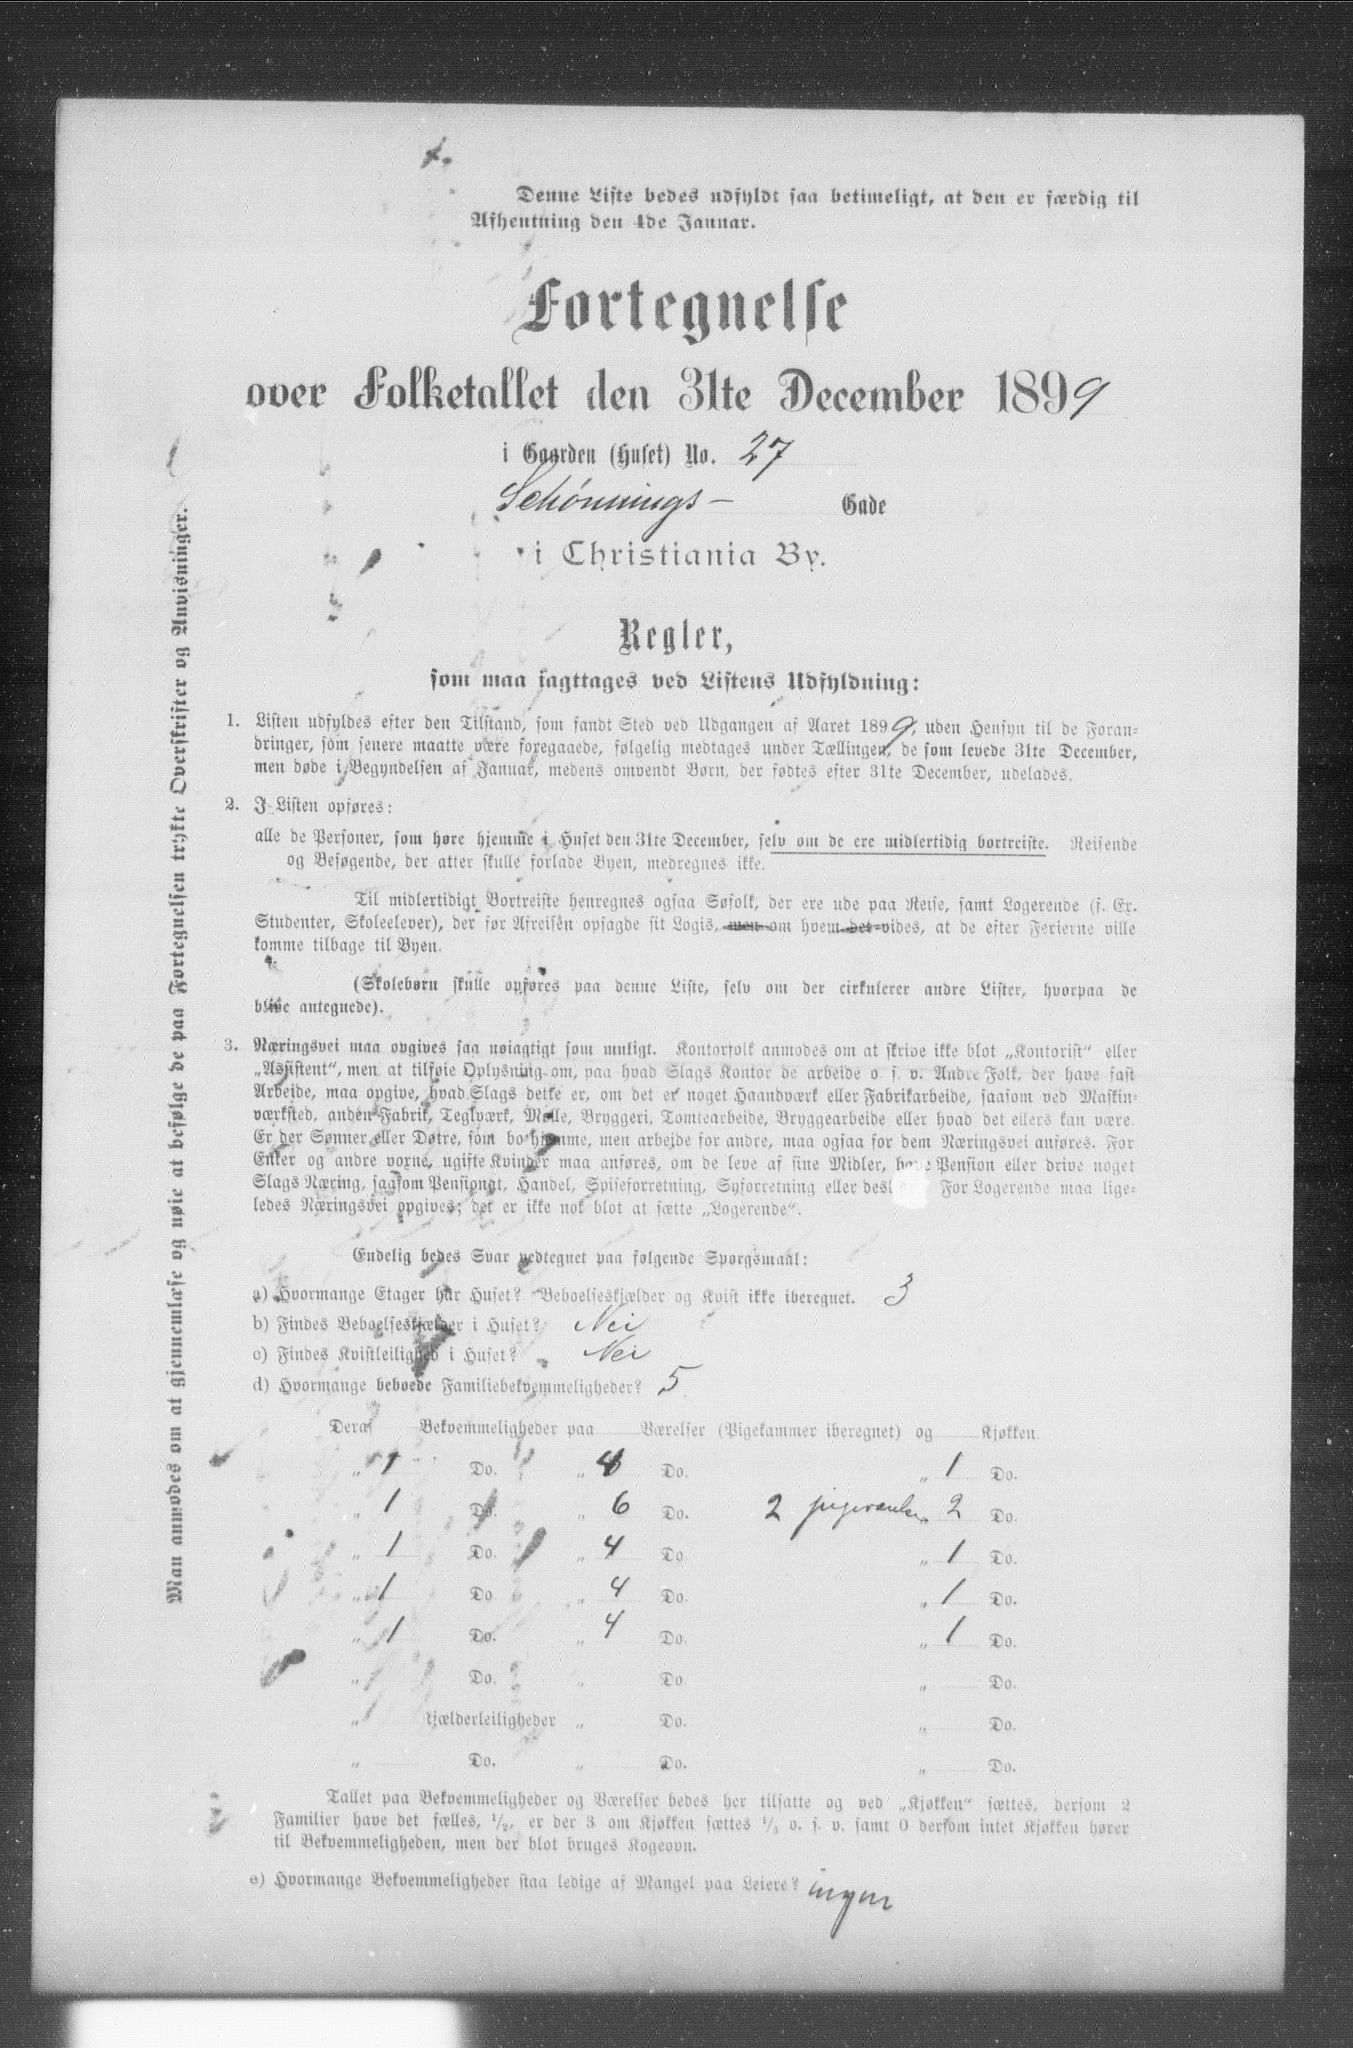 Denne Liste bedes udfyldt saa betimeligt, at den er færdig til
Afhentning den 4de Januar.
Fortegnelse
over Folketallet den 31te December 1899
i Gaarden (Huset) No. 27
Schønnings- Gade
i Christiania By.
Regler,
som maa iagttages ved Listens Udfyldning:
1. Listen udfyldes efter den Tilstand, som fandt Sted ved Udgangen af Aaret 1899, uden Hensyn til de Foran-
dringer, som senere maatte være foregaaede, følgelig medtages under Tællingen, de som levede 31te December,
men døde i Begyndelsen af Januar, medens omvendt Børn, der fødtes efter 31te December, udelades.
2. I Listen opføres:
alle de Personer, som høre hjemme i Huset den 31te December, selv om de ere midlertidig bortreiste. Reisende
og Besøgende, der atter skulle forlade Byen, medregnes ikke.
Til midlertidigt Bortreiste henregnes ogsaa Søfolk, der ere ude paa Reise, samt Logerende (f. Ex.
Studenter, Skoleelever), der før Afreisen opsagde sit Logis, men om hvem det vides, at de efter Ferierne ville
komme tilbage til Byen.
(Skolebørn skulle opføres paa denne Liste, selv om der cirkulerer andre Lister, hvorpaa de
blive antegnede).
3. Næringsvei maa opgives saa nøiagtigt som muligt. Kontorfolk anmodes om at skrive ikke blot „Kontorist“ eller
„Assistent“, men at tilføie Oplysning om, paa hvad Slags Kontor de arbeide o. s. v. Andre Folk, der have fast
Arbeide, maa opgive, hvad Slags dette er, om det er noget Haandværk eller Fabrikarbeide, saasom ved Maskin-
værksted, anden Fabrik, Teglværk, Mølle, Bryggeri, Tomtearbeide, Bryggearbeide eller hvad det ellers kan være.
Er der Sønner eller Døtre, som bo hjemme, men arbejde for andre, maa ogsaa for dem Næringsvei anføres. For
Enker og andre voxne, ugifte Kvinder maa anføres, om de leve af sine Midler, have Pension eller drive noget
Slags Næring, saasom Pensionat, Handel, Spiseforretning, Syforretning eller desl For Logerende maa lige-
ledes Næringsvei opgives; det er ikke nok blot at sætte „Logerende“.
Endelig bedes Svar vedtegnet paa følgende Spørgsmaal:
a) Hvormange Etager har Huset? Beboelseskjælder og Kvist ikke iberegnet. 3
b) Findes Beboelseskjælder i Huset? Nei
c) Findes Kvistleilighed i Huset? Nei
d) Hvormange beboede Familiebekvemmeligheder? 5
Deraf Bekvemmeligheder paa Værelser (Pigekammer iberegnet) og Kjøkken.
„ 1 Do. „ 4 Do. „ 1 Do.
„ 1 Do. „ 6 Do. 2 „ 2 Do.
„ 1 Do. „ 4 Do „ 1 Do.
„ 1 Do „ 4 Do. „ 1 Do.
„ 1 Do. „ 4 Do. „ 1 Do.
„ Do. „ Do. „ Do.
„ Kjælderleiligheder „ Do. „ Do.
„ Do. „ Do. „ Do.
Tallet paa Bekvemmeligheder og Værelser bedes her tilsatte og ved „Kjøkken“ sættes, dersom 2
Familier have det fælles, 1/2, er der 3 om Kjøkken sættes 1/3 o. s. v. samt 0 dersom intet Kjøkken hører
til Bekvemmeligheden, men der blot bruges Kogeovn.
e) Hvormange Bekvemmeligheder staa ledige af Mangel paa Leiere? ingen
Man anmodes om at gjennemlæse og nøie at befølge de paa Fortegnelsen trykte Overskrifter og Anvisninger.